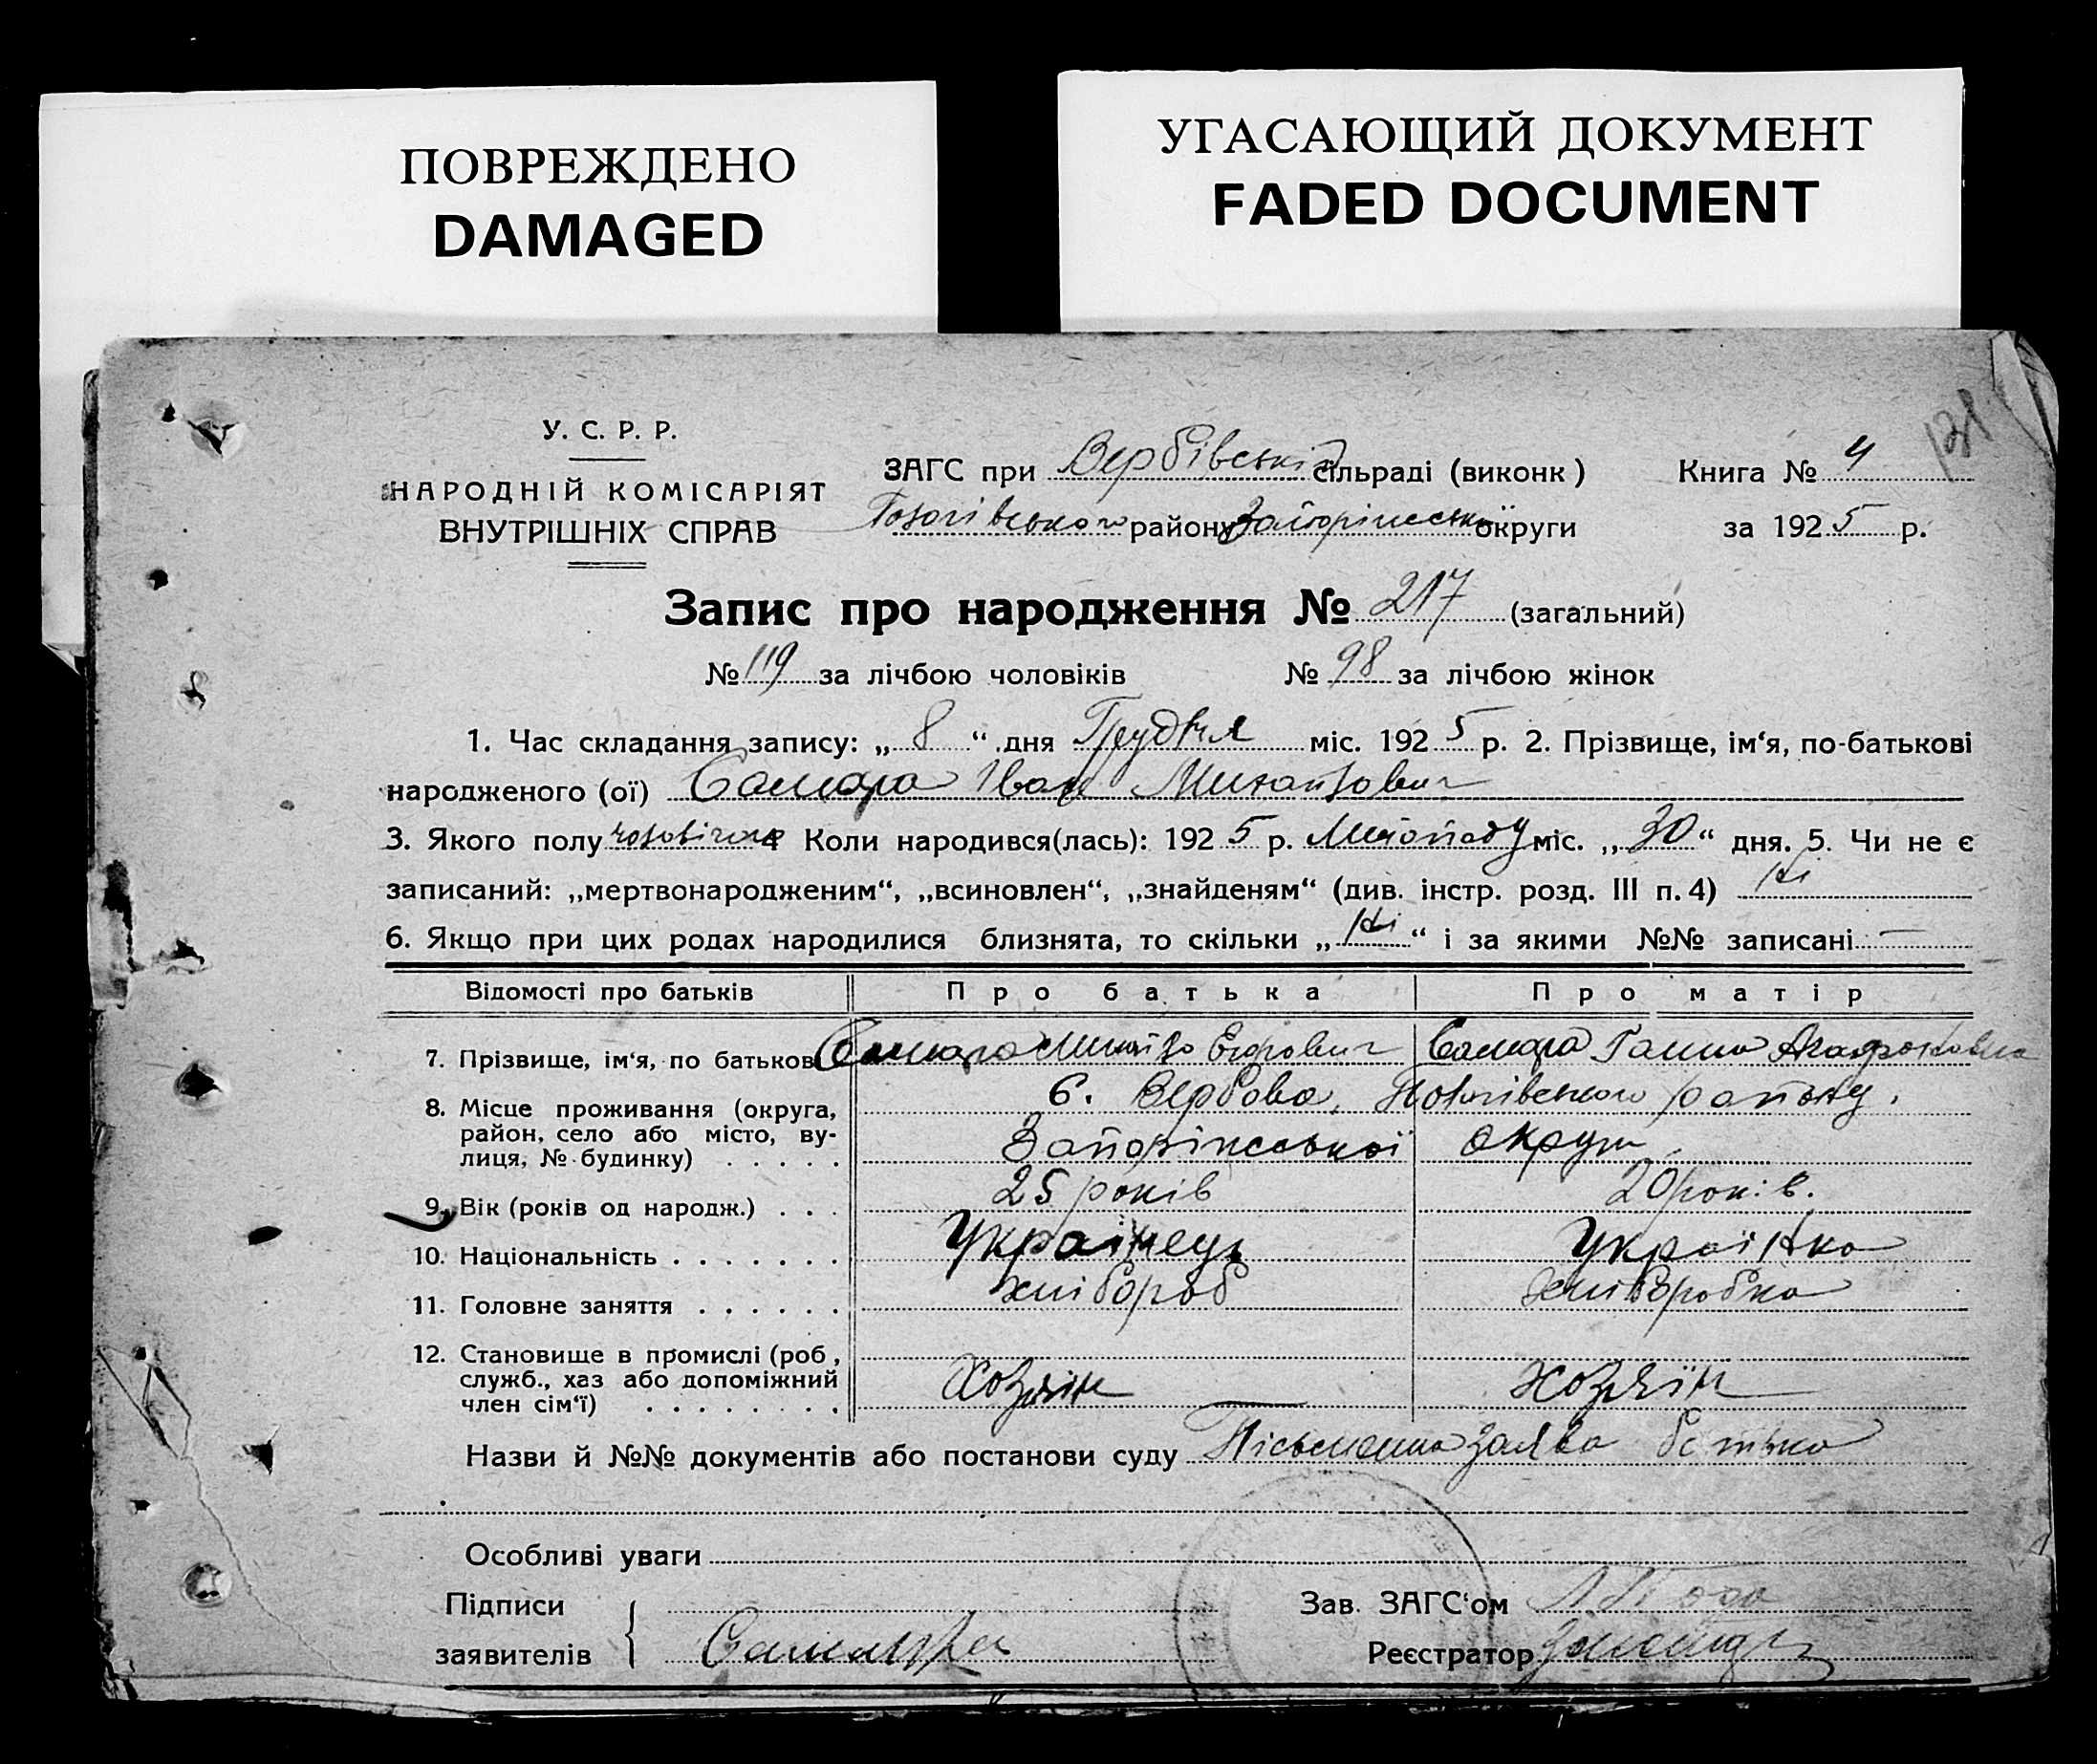 ПОВРЕЖДЕНО
DAMAGED
УГАСАЮЩИЙ ДОКУМЕНТ
FADED DOCUMENT
131
У. С. Р. Р.
НАРОДНІЙ КОМІСАРІЯТ
ВНУТРІШНІХ СПРАВ
ЗАГС при Вербівській сільраді (виконк) Книга № 4
району Запоріжської округи за 1925 р.
Запис про народження № 217 (загальний)
№ 119 за лічбою чоловіків № 98 за лічбою жінок
1. Час складання запису: „8“ дня Грудня міс. 1925 р. 2. Прізвище, ім‘я, по-батькові
народженого (ої) Самара Іван Михайлович
3. Якого полу чоловічого 4 Коли народився(лась): 1925 р. Листопаду міс. „30“ дня. 5. Чи не є
записаний: „мертвонародженим“, „всиновлен“, „знайденям“ (див. інстр. розд. III п. 4) Ні
6. Якщо при цих родах народилися близнята, то скільки „Ні“ і за якими №№ записані —
Відомості про батьків Про батька Про матір
7. Прізвище, ім‘я, по батькові Самара Михайло Егорович Самара Ганна
8. Місце проживання (округа, с. Вербова, Пологівського району,
район, село або місто, ву-
лиця, № будинку) . . . . . Запоріжської округи
9. Вік (років од народж.) . . . 25 років 20 років.
10. Національність . . . . . . . Українець Українка
11. Головне заняття . . . . . . хлібороб хліборобка
12. Становище в промислі (роб,
служб., хаз або допоміжний
член сім‘ї) . . . . . . . . Хозяїн хозяїн
Назви й №№ документів або постанови суду Пісьменна заява батька
Особливі уваги
Підписи
заявителів Самара
Зав. ЗАГС‘ом
Реєстратор